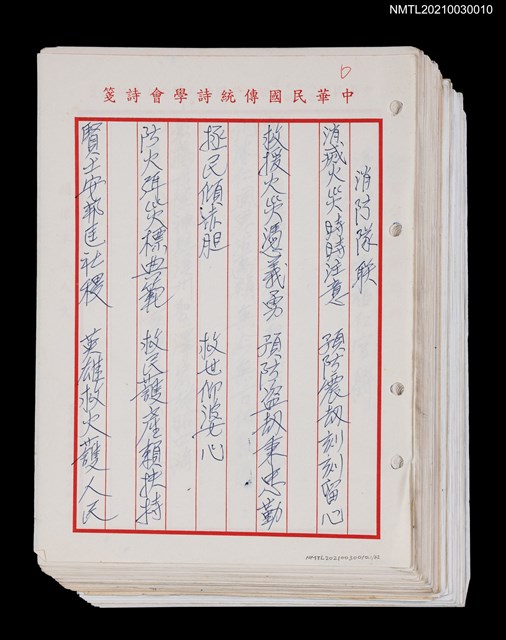 NMTL20210030010
中華民國傳統詩學會詩箋
消防隊联
消滅火災時時注意 預防震劫刻刻留心
救援火災憑義勇 預防盜劫秉忠勤
拯民傾赤胆 救世仰婆心
防火弭災標典範 救民護產賴扶持
賢士安邦匡社稷 英雄救火護人民